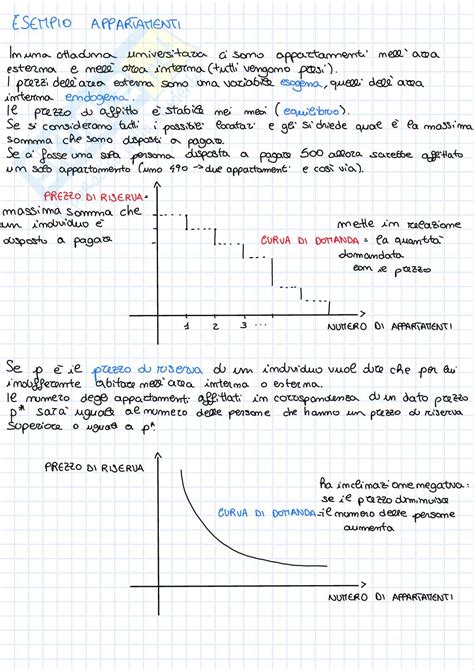 ESEMPIO APPARTAMENTI
In una cittadina universitaria ci sono appartamenti nell'area
esterna e nell'area interna (tutti vengono presi).
I prezzi dell'area esterna sono una variabile esogena, quelli dell'area
interna endogena.
Il prezzo di affitto è stabile nei mesi (equilibrio).
Se si considerano tutti i possibili locatari e gli si chiede qual è la massima
somma che sono disposti a pagare.
Se ci fosse una sola persona disposta a pagare 500 allora sarebbe affittato
un solo appartamento (uno 490 → due appartamenti e così via).
PREZZO DI RISERVA =
massima somma che
un individuo è
disposto a pagare
CURVA DI DOMANDA =
mette in relazione
la quantità
domandata
con il prezzo
1 2 3 ...
NUMERO DI APPARTAMENTI
Se p è il prezzo di riserva di un individuo vuol dire che per lui
indifferente abitare nell'area interna o esterna.
Il numero degli appartamenti affittati in corrispondenza di un dato prezzo
p* sarà uguale al numero delle persone che hanno un prezzo di riserva
superiore o uguale a p*
PREZZO DI RISERVA
CURVA DI DOMANDA
ha inclinazione negativa:
se il prezzo diminuisce
il numero delle persone
aumenta
NUMERO DI APPARTAMENTI